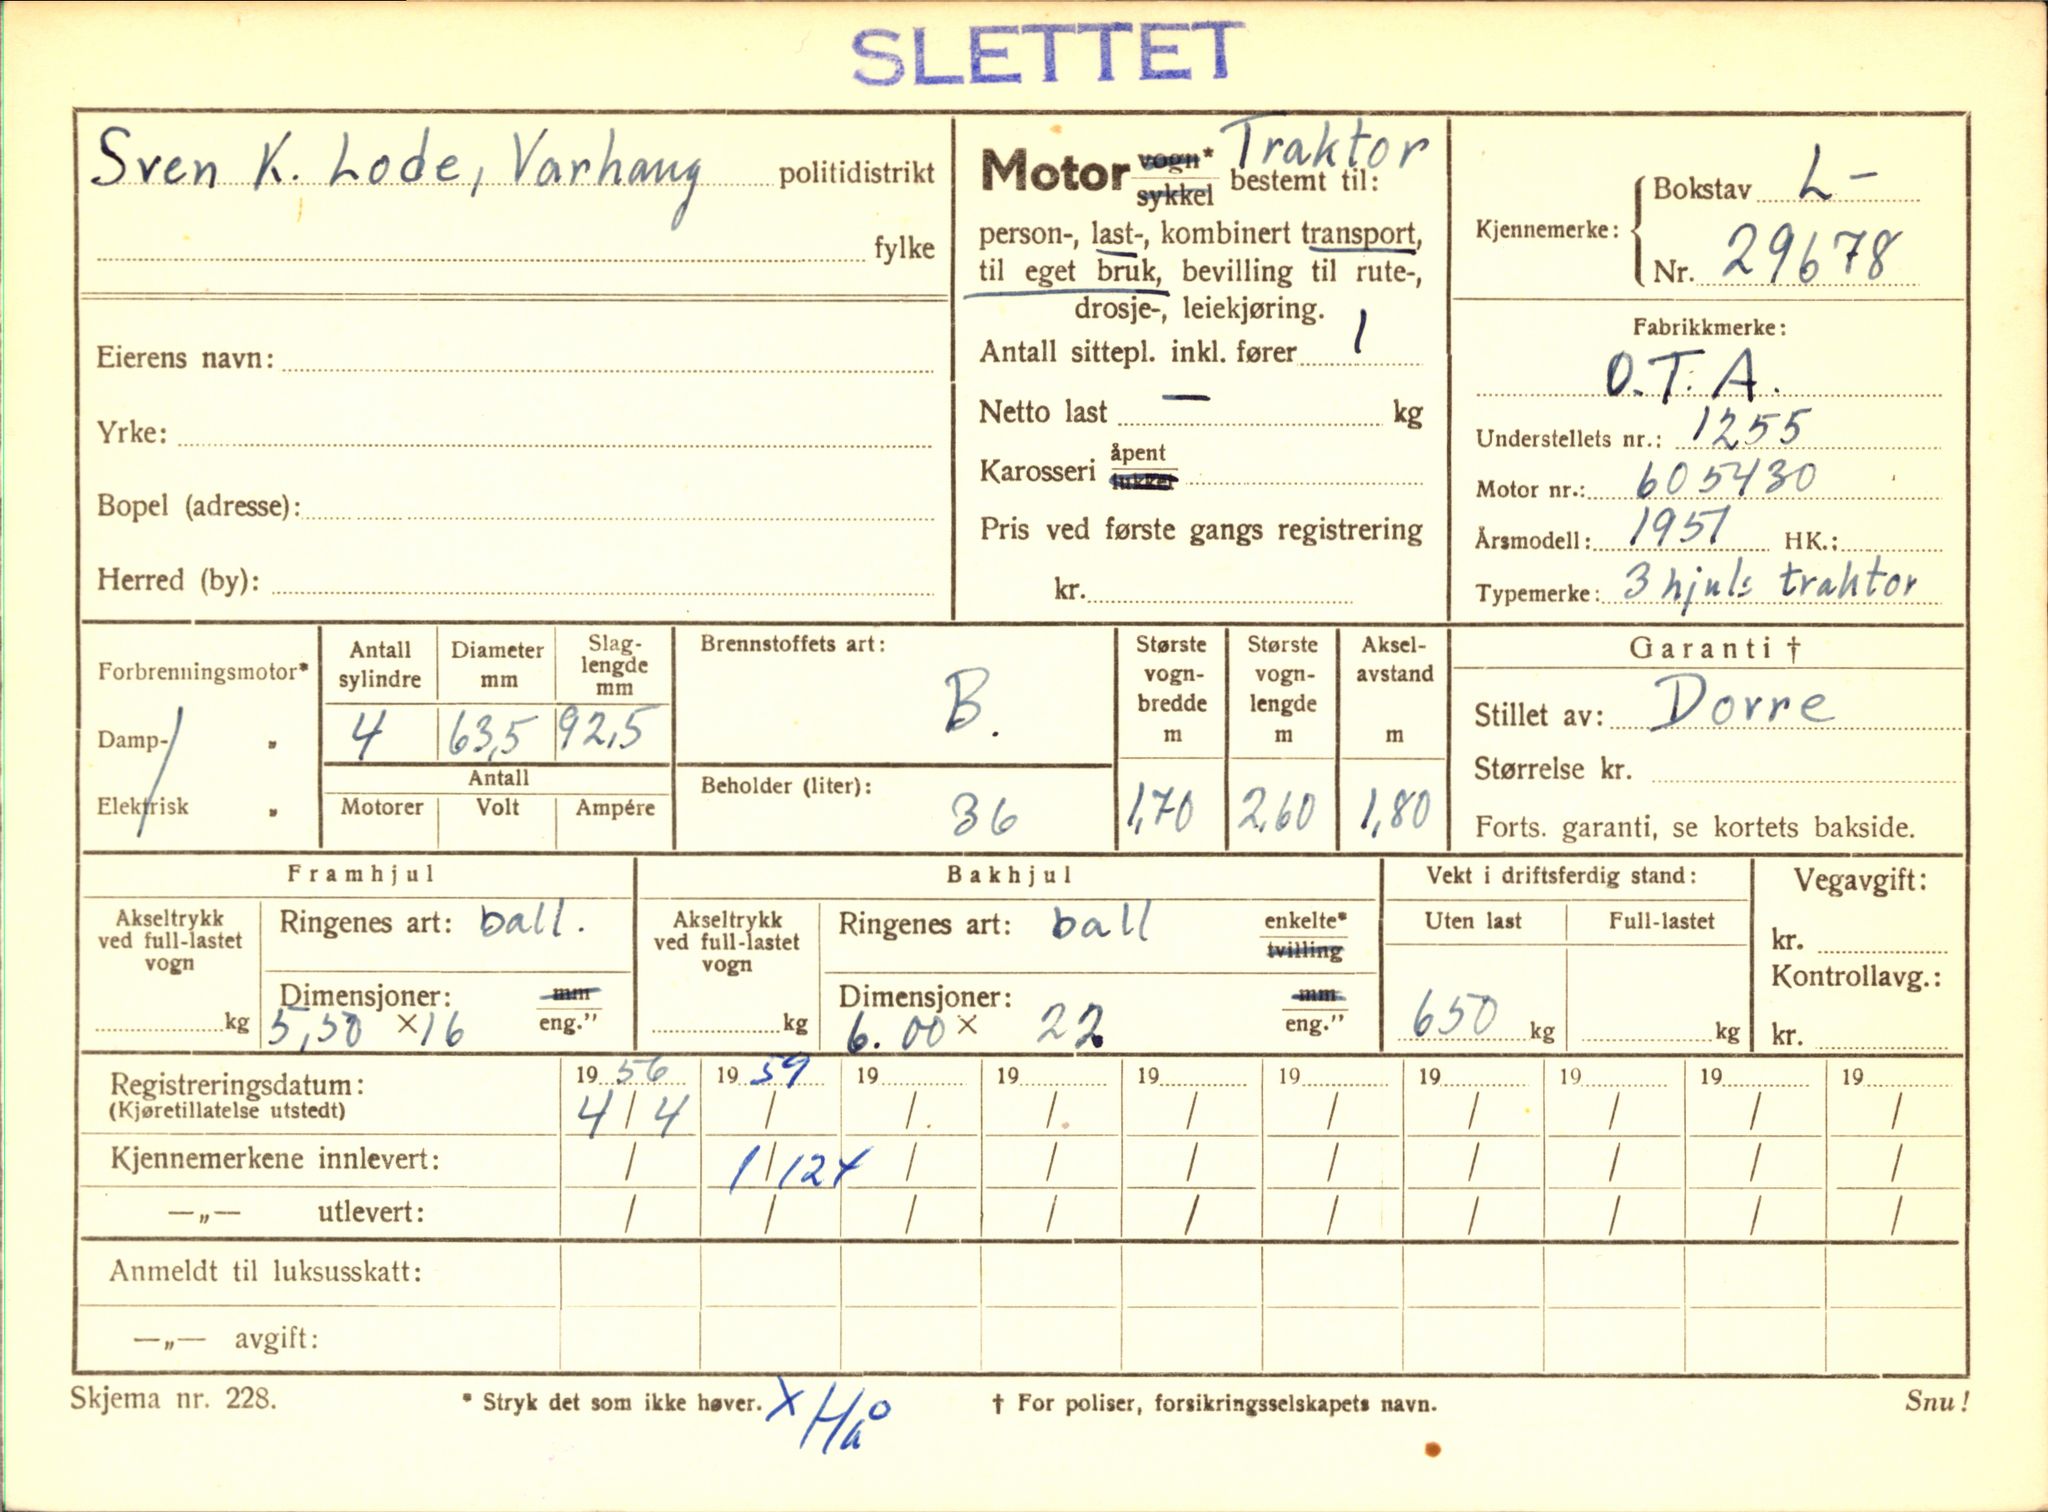 SLETTET
Sven K. Lode, Varhaug politidistrikt
fylke
Eierens navn:
Yrke:
Bopel (adresse):
Herred (by):
Traktor
Motor vogn* sykkel bestemt til:
person-, last-, kombinert transport,
til eget bruk, bevilling til rute-,
drosje-, leiekjøring.
Antall sittepl. inkl. fører 1
Netto last — kg
Karosseri åpent lukket
Pris ved første gangs registrering
kr.
Kjennemerke: Bokstav L-
Nr. 29678
Fabrikkmerke:
O.T.A.
Understellets nr.: 1255
Motor nr.: 605430
Årsmodell: 1951 HK.:
Typemerke: 3 hjuls traktor
Forbrenningsmotor*
Damp- „
Elektrisk „
Antall sylindre
Diameter mm
Slag-lengde mm
4 63,5 92,5
Antall
Motorer Volt Ampére
Brennstoffets art:
B.
Beholder (liter):
36
Største vogn-bredde m
1,70
Største vogn-lengde m
2,60
Aksel-avstand m
1,80
Garanti †
Stillet av: Dorre
Størrelse kr.
Forts. garanti, se kortets bakside.
Framhjul
Akseltrykk
ved full-lastet
vogn
kg
Ringenes art: ball.
Dimensjoner: mm
5,50 x 16 eng."
Bakhjul
Akseltrykk
ved full-lastet
vogn
kg
Ringenes art: ball enkelte* tvilling
Dimensjoner: mm
6.00 x 22 eng."
Vekt i driftsferdig stand:
Uten last Full-lastet
650 kg kg
Vegavgift:
kr.
Kontrollavg.:
kr.
Registreringsdatum: 1956 1959 19 19 19 19 19 19 19 19
(Kjøretillatelse utstedt) 4/4 / / / / / / / / /
Kjennemerkene innlevert: / 1/12 x / / / / / / / /
—„— utlevert: / / / / / / / / / /
Anmeldt til luksusskatt:
—„— avgift:
Skjema nr. 228. * Stryk det som ikke høver. x Hå † For poliser, forsikringsselskapets navn. Snu!